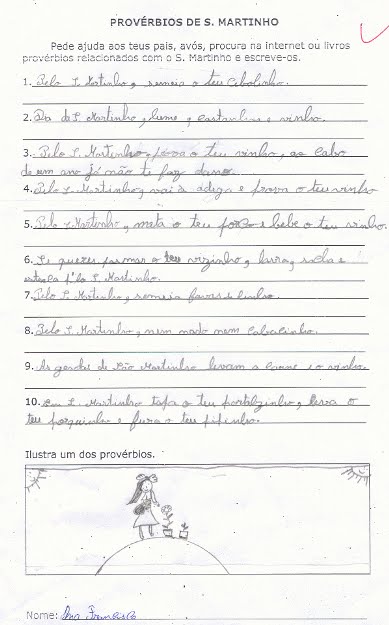 PROVÉRBIOS DE S. MARTINHO
Pede ajuda aos teus pais, avós, procura na internet ou livros
provérbios relacionados com o S. Martinho e escreve-os.
1. Pelo S. Martinho, semeia o teu cebolinho.
2. Dia de S. Martinho, lume, castanhas e vinho.
3. Pelo S. Martinho, prova o teu vinho, ao cabo
de um ano já não te faz dano.
4. Pelo S. Martinho, vai à adega e prova o teu vinho
5. Pelo S. Martinho, mata o teu porco e bebe o teu vinho.
6. Se queres pasmar o teu vizinho, lavra, sacha e
esterca p'lo S. Martinho.
7. Pelo S. Martinho, semeia favas e linho.
8. Pelo S. Martinho, nem nado nem cabacinho.
9. As geadas de São Martinho levam a carne e o vinho.
10. Em S. Martinho tapa o teu portalzinho, leva o
teu porquinho e fura o teu pipinho.
Ilustra um dos provérbios.
Nome: Ana